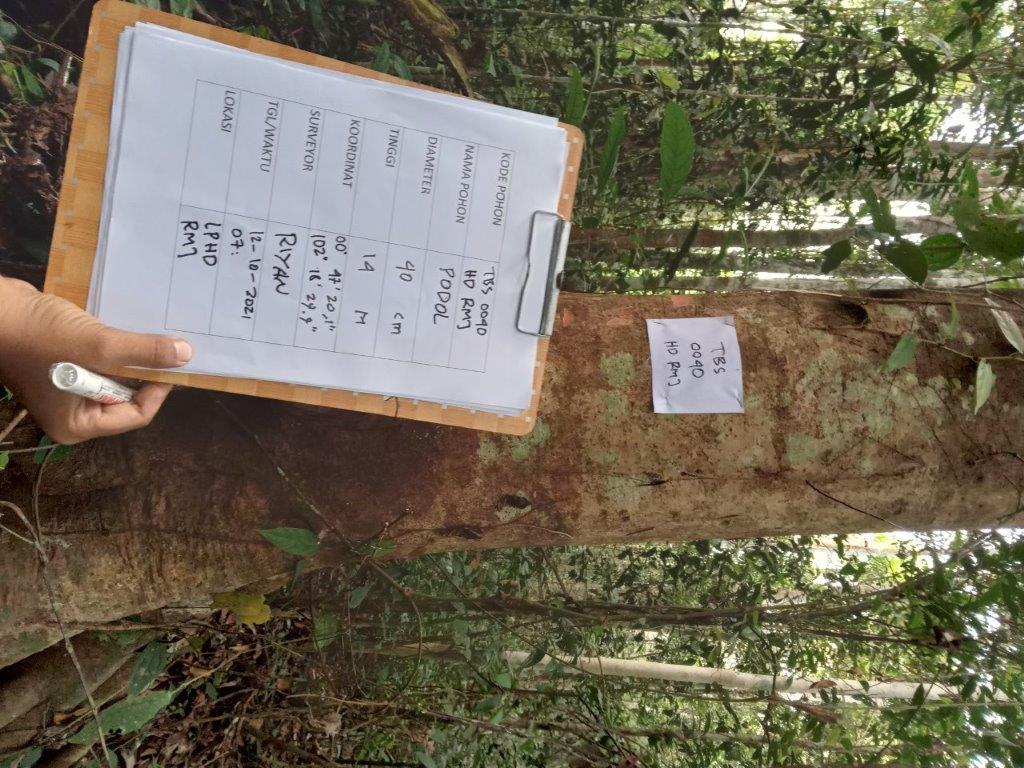 TBS
0040
HD RMJ
KODE POHON TBS 0040
HD RMJ
NAMA POHON PODOL
DIAMETER 40 cm
TINGGI 14 M
KOORDINAT 00° 47' 20,1"
102° 18' 29.9"
SURVEYOR RIYAN
TGL/WAKTU 12-10-2021
07:
LOKASI LPHD
RMJ